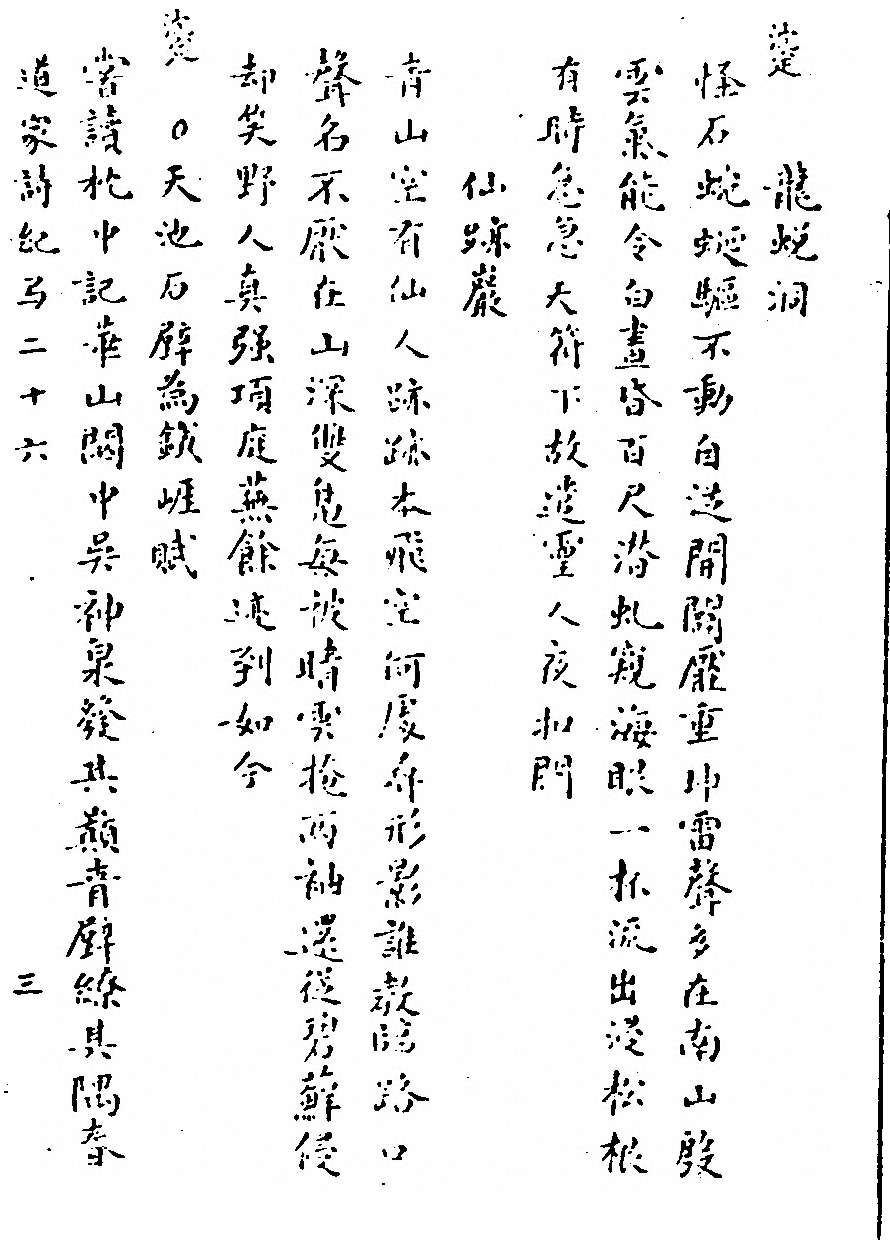 龍蛻洞
怪石蜿蜒驅不動自送開闢壓重坤雷聲多在南山殷
雲氣能令白晝昏百尺潛虬窺海眼一杯流出浸松根
有時急急天符下故遣靈人夜扣門
仙跡巖
青山空有仙人跡跡本飛空何處尋形影誰教臨路口
聲名不厭在山深雙鳧每被晴雲掩兩衲還從碧蘚侵
却笑野人真强項庭蕪餘迹到如今
○天池石壁為鐵崖賦
嘗讀枕中記華山閟中吳神泉發其巔青壁繚其隅奉
道家詩紀 二十六 三